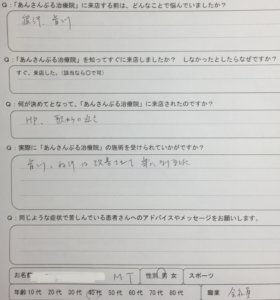 Q:「あんさんぶる治療院」に来店する前は、どんなことで悩んでいましたか?
Q:「あんさんぶる治療院」を知ってすぐに来店しましたか? しなかったとしたらなぜですか?
すぐ、来店した。(該当なら○で可)
Q:何が決めてとなって、「あんさんぶる治療院」に来店されたのですか?
HP、
Q:実際に「あんさんぶる治療院」の施術を受けられていかがですか?
Q:同じような症状で苦しんでいる患者さんへのアドバイスやメッセージをお願いします。
お名前 M.T 性別 男 女 スポーツ
年齢 10代 20代 30代 40代 50代 60代 70代 80代 職業 会社員